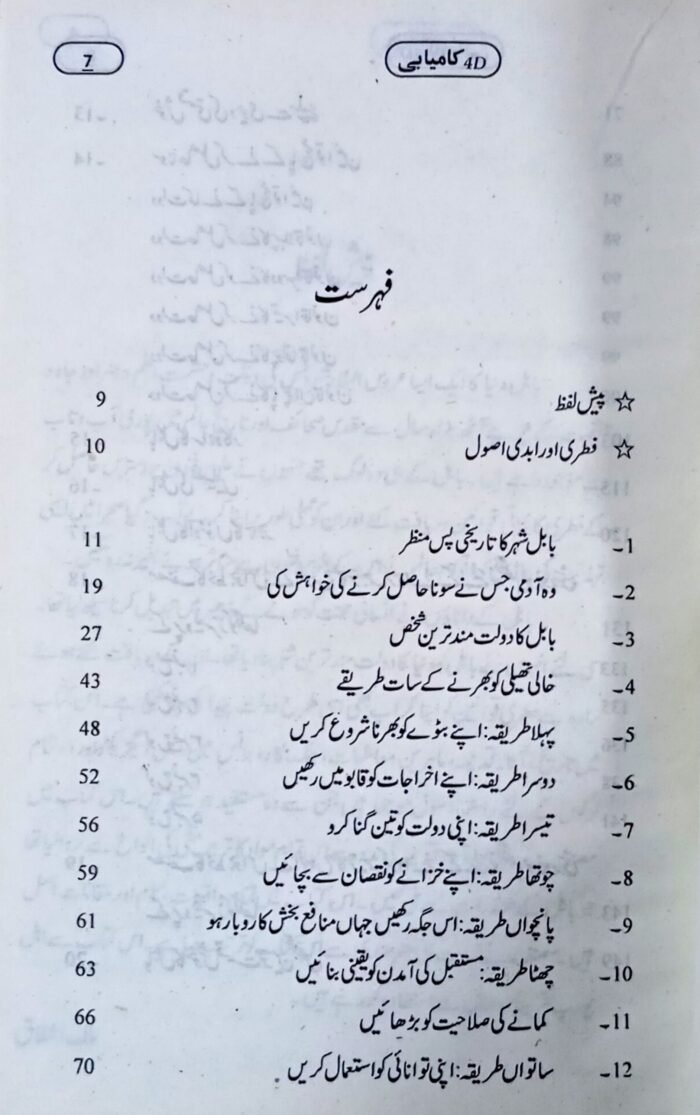 4D کامیابی
7
فہرست
☆ پیش لفظ 9
☆ فطری اور ابدی اصول 10
1۔ بابل شہر کا تاریخی پس منظر 11
2۔ وہ آدمی جس نے سونا حاصل کرنے کی خواہش کی 19
3۔ بابل کا دولت مند ترین شخص 27
4۔ خالی تھیلی کو بھرنے کے سات طریقے 43
5۔ پہلا طریقہ: اپنے بٹوے کو بھرنا شروع کریں 48
6۔ دوسرا طریقہ: اپنے اخراجات کو قابو میں رکھیں 52
7۔ تیسرا طریقہ: اپنی دولت کو تین گنا کرو 56
8۔ چوتھا طریقہ: اپنے خزانے کو نقصان سے بچائیں 59
9۔ پانچواں طریقہ: اس جگہ رکھیں جہاں منافع بخش کاروبار ہو 61
10۔ چھٹا طریقہ: مستقبل کی آمدن کو یقینی بنائیں 63
11۔ کمانے کی صلاحیت کو بڑھائیں 66
12۔ ساتواں طریقہ: اپنی توانائی کو استعمال کریں 70